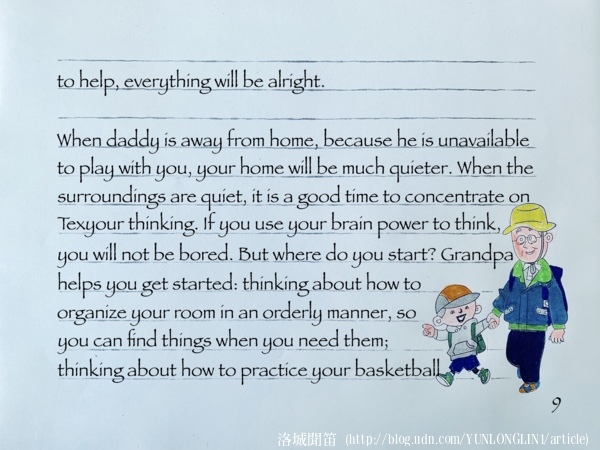 to help, everything will be alright.
When daddy is away from home, because he is unavailable
to play with you, your home will be much quieter. When the
surroundings are quiet, it is a good time to concentrate on
Texyour thinking. If you use your brain power to think,
you will not be bored. But where do you start? Grandpa
helps you get started: thinking about how to
organize your room in an orderly manner, so
you can find things when you need them;
thinking about how to practice your basketball
9
洛城聞笛 (http://blog.udn.com/YUNLONGLIN1/article)